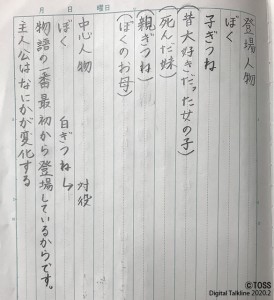 登場人物
ぼく
子ぎつね
(昔大好きだった女の子)
(死んだ妹)
(親ぎつね)
(ぼくのお母)
中心人物 対役
ぼく 白ぎつね
物語の一番最初から登場しているからです。
主人公はなにかが変化する
月 日 曜日
©TOSS
Digital Talkline 2020.2